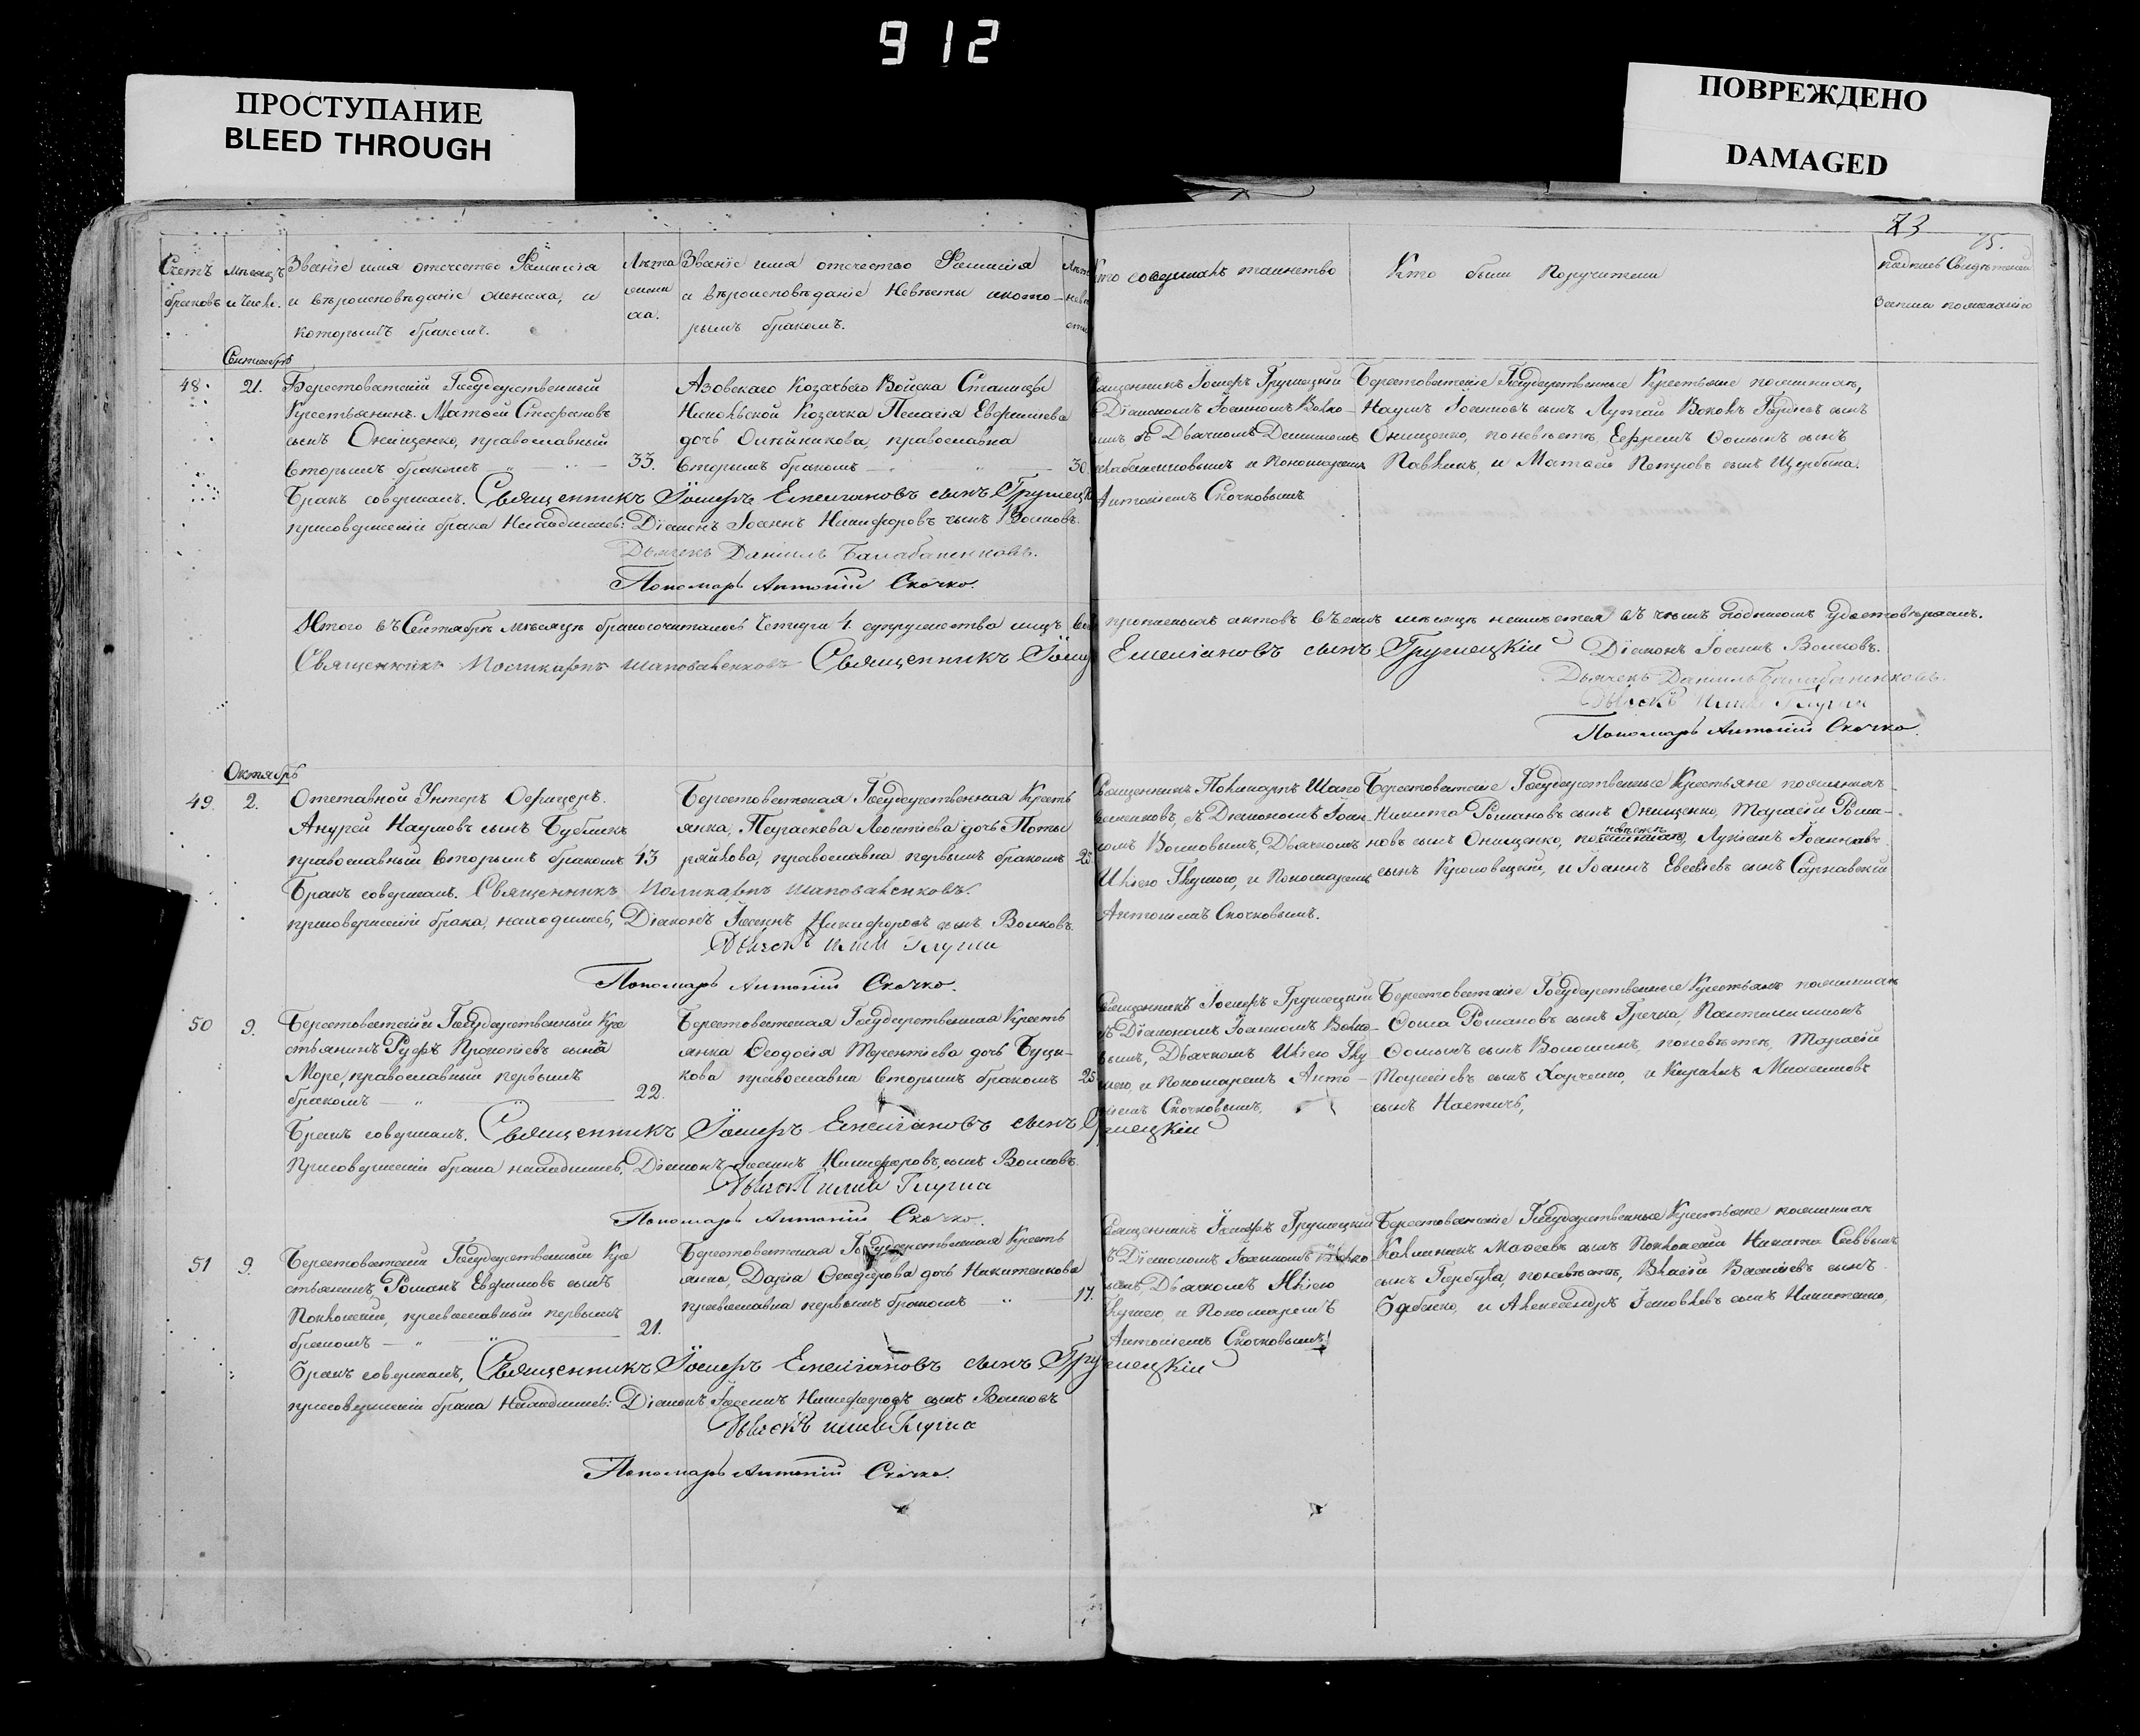 912
ПРОСТУПАНИЕ
BLEED THROUGH
ПОВРЕЖДЕНО
DAMAGED
73
75.
Счетъ браковъ
Мѣсяцъ и число.
Званіе имя отечество Фамилія
и вѣроисповѣданіе жениха, и
которымъ бракомъ.
Лѣта жениха.
Званіе имя отечество Фамилія
и вѣроисповѣданіе Невѣсты и кото-
рымъ бракомъ.
Кто совершалъ таинство
Кто были Поручители
Сентябрь
48.
21.
Берестоватскій Государственный
Крестьянинъ Матѳій Стефановъ
сынъ Онищенко, православный
вторымъ бракомъ
33.
Азовскаго Козачьего Войска Станицы
Никольской Козачка Пелагія Евфиміева
дочь Олейникова, православна
вторымъ бракомъ
30
Священникъ Іосифъ Грушецкій
Діакономъ Іоанномъ Волко-
вымъ съ Дьячкомъ Даніиломъ
и Пономаремъ
Антоніемъ Скочковымъ.
Берестоватскіе Государственные Крестьяне по женихѣ,
Наумъ Іоанновъ сынъ сынъ
Онищенко, по невѣстѣ, Ефремъ Ѳоминъ сынъ
Павликъ, и Матѳей Петровъ сынъ Щербина.
Бракъ совершалъ. Священникъ Іосифъ Емеліановъ сынъ Грушецкій
присовершеніи брака Находились: Діаконъ Іоаннъ Никифоровъ сынъ Волковъ.
Дьячекъ Даніилъ Балабаненковъ.
Пономарь Антоній Скочко.
Итого въ Сентябрѣ мѣсяцѣ бракосочиталось Четыри 4 супружества
актовъ въ семъ мѣсяцѣ неимѣется въ чемъ подписомъ удостовѣряемъ.
Священникъ Поликарпъ Шаповаленковъ Священникъ Іосифъ Емеліановъ сынъ Грушецкій Діаконъ Іоаннъ Волковъ.
Дьячекъ Даніилъ Балабаненковъ.
Пономарь Антоній Скочко.
Октябрь
49.
2.
Отставной Унтеръ Офицеръ
Андрей Наумовъ сынъ Бубликъ
православный вторымъ бракомъ
43
Берестоватская Государственная Кресть
янка, Параскева Леонтіева дочь
православна первымъ бракомъ
25
Священникъ Поликарпъ Шапо
валенковъ, съ Діакономъ Іоан-
номъ Волковымъ, Дьячкомъ
и Пономаремъ
Антоніемъ Скочковымъ.
Берестоватскіе Государственные Крестьяне по женихѣ
Никита Романовъ сынъ Онищенко, Тарасій Рома-
новъ сынъ Онищенко, по невѣстѣ, Лукіанъ Іоанновъ
сынъ Кроловецкій, и Іоаннъ Евсевіевъ сынъ Сарнавскій
Бракъ совершалъ. Священникъ Поликарпъ Шаповаленковъ.
присовершеніи брака, находились, Діаконъ Іоаннъ Никифоровъ сынъ Волковъ.
Пономарь Антоній Скочко.
50
9.
Берестоватскій Государственный Кре
стьянинъ Руфъ Прокопіевъ сынъ
Море, православный первымъ
бракомъ
22.
Берестоватская Государственная Кресть
янка Ѳеодосія Терентіева дочь
православна вторымъ бракомъ
25
Священникъ Іосифъ Грушецкій
съ Діакономъ Іоанномъ Волко-
вымъ, Дьячкомъ
и Пономаремъ Анто-
ніемъ Скочковымъ,
Берестоватскіе Государственные Крестьяне по женихѣ
Ѳома Романовъ сынъ Гречка, Пантилимонъ
Ѳоминъ сынъ Волошинъ, по невѣстѣ, Тарасій
сынъ Харченко, и Кирилъ
сынъ Настичъ,
Бракъ совершалъ. Священникъ Іосифъ Емеліановъ сынъ Грушецкій
Присовершеніи брака находились. Діаконъ Іоаннъ Никифоровъ сынъ Волковъ.
Пономарь Антоній Скочко.
51
9.
Берестоватскій Государственный Кре
стьянинъ, Романъ Евфимовъ сынъ
православный первымъ
бракомъ
21.
Берестоватская Государственная Кресть
янка, Дарія Ѳеодорова дочь Никитенкова
православна первымъ бракомъ
17.
Священникъ Іосифъ Грушецкій
съ Діакономъ Іоанномъ Волко-
вымъ, Дьячкомъ Иліею
и Пономаремъ
Антоніемъ Скочковымъ.
Берестоватскіе Государственные Крестьяне по женихѣ
сынъ по невѣстѣ, Власій Василіевъ сынъ
и Александръ Іаковлевъ сынъ Никитенко,
Бракъ совершалъ, Священникъ Іосифъ Емеліановъ сынъ Грушецкій
присовершеніи брака Находились: Діаконъ Іоаннъ Никифоровъ сынъ Волковъ
Пономарь Антоній Скочко.